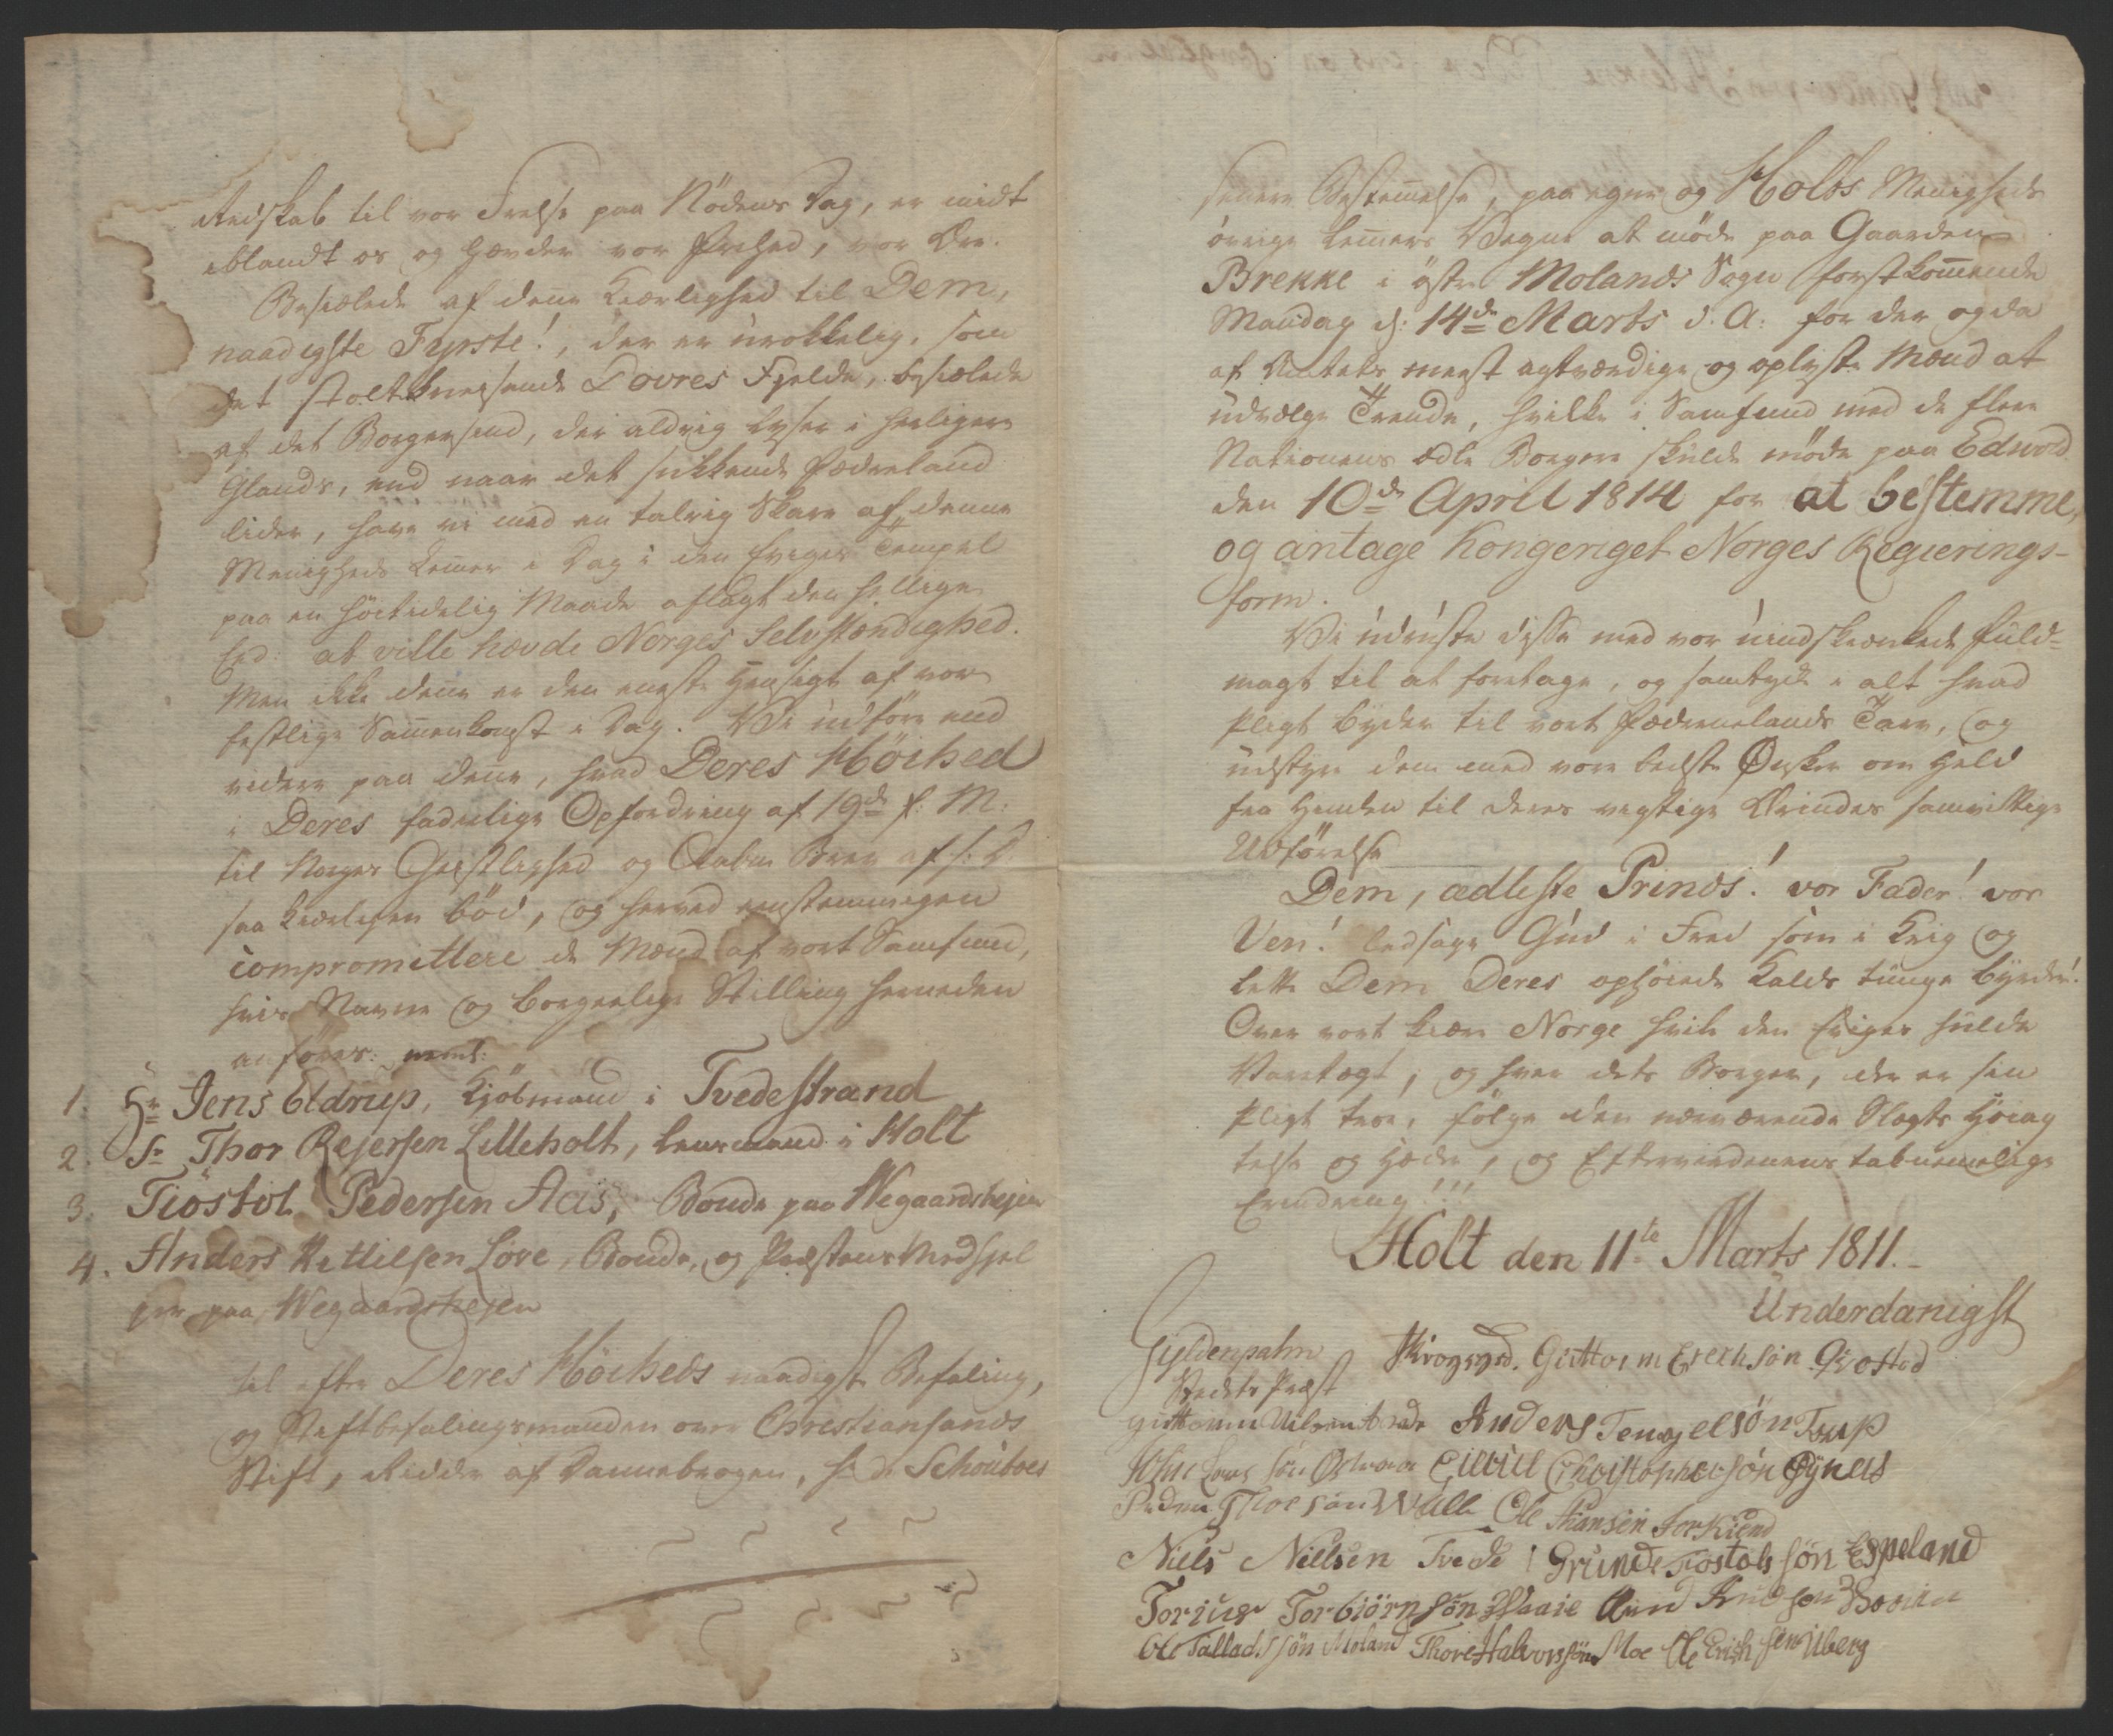 Redskab til vor Frelse paa Nødens Dag, er midt
iblandt os og hævder vor Frihed, vor Ære.
Besielede af denne Kierlighed til Dem,
naadigste Fyrste!, der er urokkelig, som
det stoltknejsende Dovres Fjelde, besielede
af det Borgersind, der aldrig lyser i herligere
Glands, end naar det sukkende Fædreland
lider, have vi med en talrig Skare af denne
Menigheds Lemer i Dag i den Eviges Tempel
paa en høitidelig Maade aflagt den hellige
Eed: at ville hævde Norges Selvstændighed.
Men ikke denne er den eneste Hensigt af vor
festlige Samenkomst i Dag. Vi udføre end
videre paa denne, hvad Deres Höihed
i Deres faderlige Opfordring af 19de f: M:
til Norges Geistlighed og Aabne Brev af s: D.
saa kierligen bød, og herved eenstemmigen
compromittere de Mænd af vort Samfund,
hvis Navne og borgerlige Stilling herneden
anføres: neml:
1. Hr Jens Eldrup, Kjöbmand i Tvedestrand
2. Sr Thor Rejersen Lilleholt, Lensmand i Holt
3. Tiöstol Pedersen Aas, Bonde paa Wegaardshejen
4. Anders Kittilsen Löve, Bonde, og Præstens Medhjel
per paa Wegaardshejen
til efter Deres Höiheds naadigste Befaling,
og Stiftbefalingsmanden over Christiansands
Stift, Ridder af Dannebrogen, Hr. Schouboes
senere Bestemelse, paa egne og Holts Menigheds
övrige Lemers Vegne at møde paa Gaarden
Brekke i östre Molands Sogn forstkommende
Mandag d: 14de Marts d. A: for der og da
af Amtets meest agtværdige og oplyste Mænd at
udvælge Trende, hvilke i Samfund med de flere
Nationens ædle Borgere skulde møde paa Edsvold
den 10de April 1814 for at bestemme,
og antage Kongeriget Norges Regierings-
form.
Vi udruste disse med vor uindskrænkede Fuld-
magt til at foretage, og samtykke i alt hvad
Pligt byder til vort Fædrenelands Tarv, og
udstyre dem med vore bedste Ønsker om Held
fra Himlen til deres vigtige Ærindes samvittige
Udförelse
Dem, ædleste Prinds! vor Fader! vor
Ven! ledsage Gud i Fred som i Krig og
lette Dem Deres ophöiede Kalds tunge Byrder!
Over vort kiere Norge hvile den Eviges hulde
Varetægt, og hver dets Borger, der er sin
Pligt troe, fölge den nærværende Slægts Höiag
telse og Hæder, og Efterverdenens taknemelige
Erindring!!!
Holt den 11te Marts 1811.
Underdanigst
Gyldenpalm Krogsgrd. Guttorm Erechsön Qvastad
Stedets Præst
Guttorm Nilsen Anders Tengelsön
Larssön Eivind Christophersön
Peder Thorsön Walle Ole Hansen
Niels Nielsen Tvede Grunde Tiostolssön Espeland
Torius Torbiörnsön Waaie Knudsön
Ole Talladssön Moland Thore Halvorssön Moe Ole Erichsen Uberg